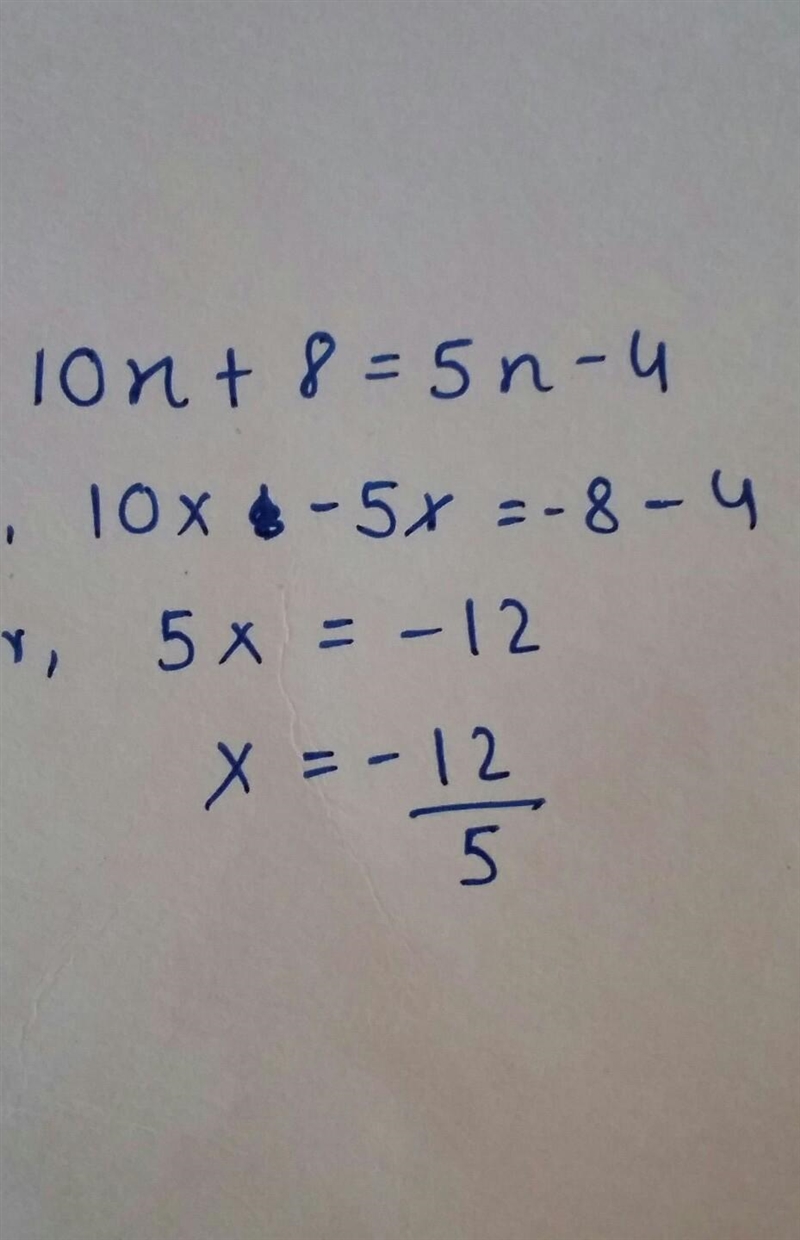 10x + 8 = 5x - 4
, 10x - 5x = -8 - 4
r, 5x = -12
x = -12/5